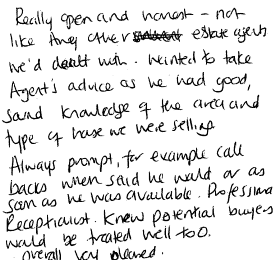 Really open and honest - not
like any other estate agents
we'd dealt with. Wanted to take
Agent's advice as he had good,
sound knowledge of the area and
type of house we were selling
Always prompt, for example call
backs when said he would or as
soon as he was available. Professional
Receptionist. Knew potential buyers
would be treated well too.
Overall very pleased.